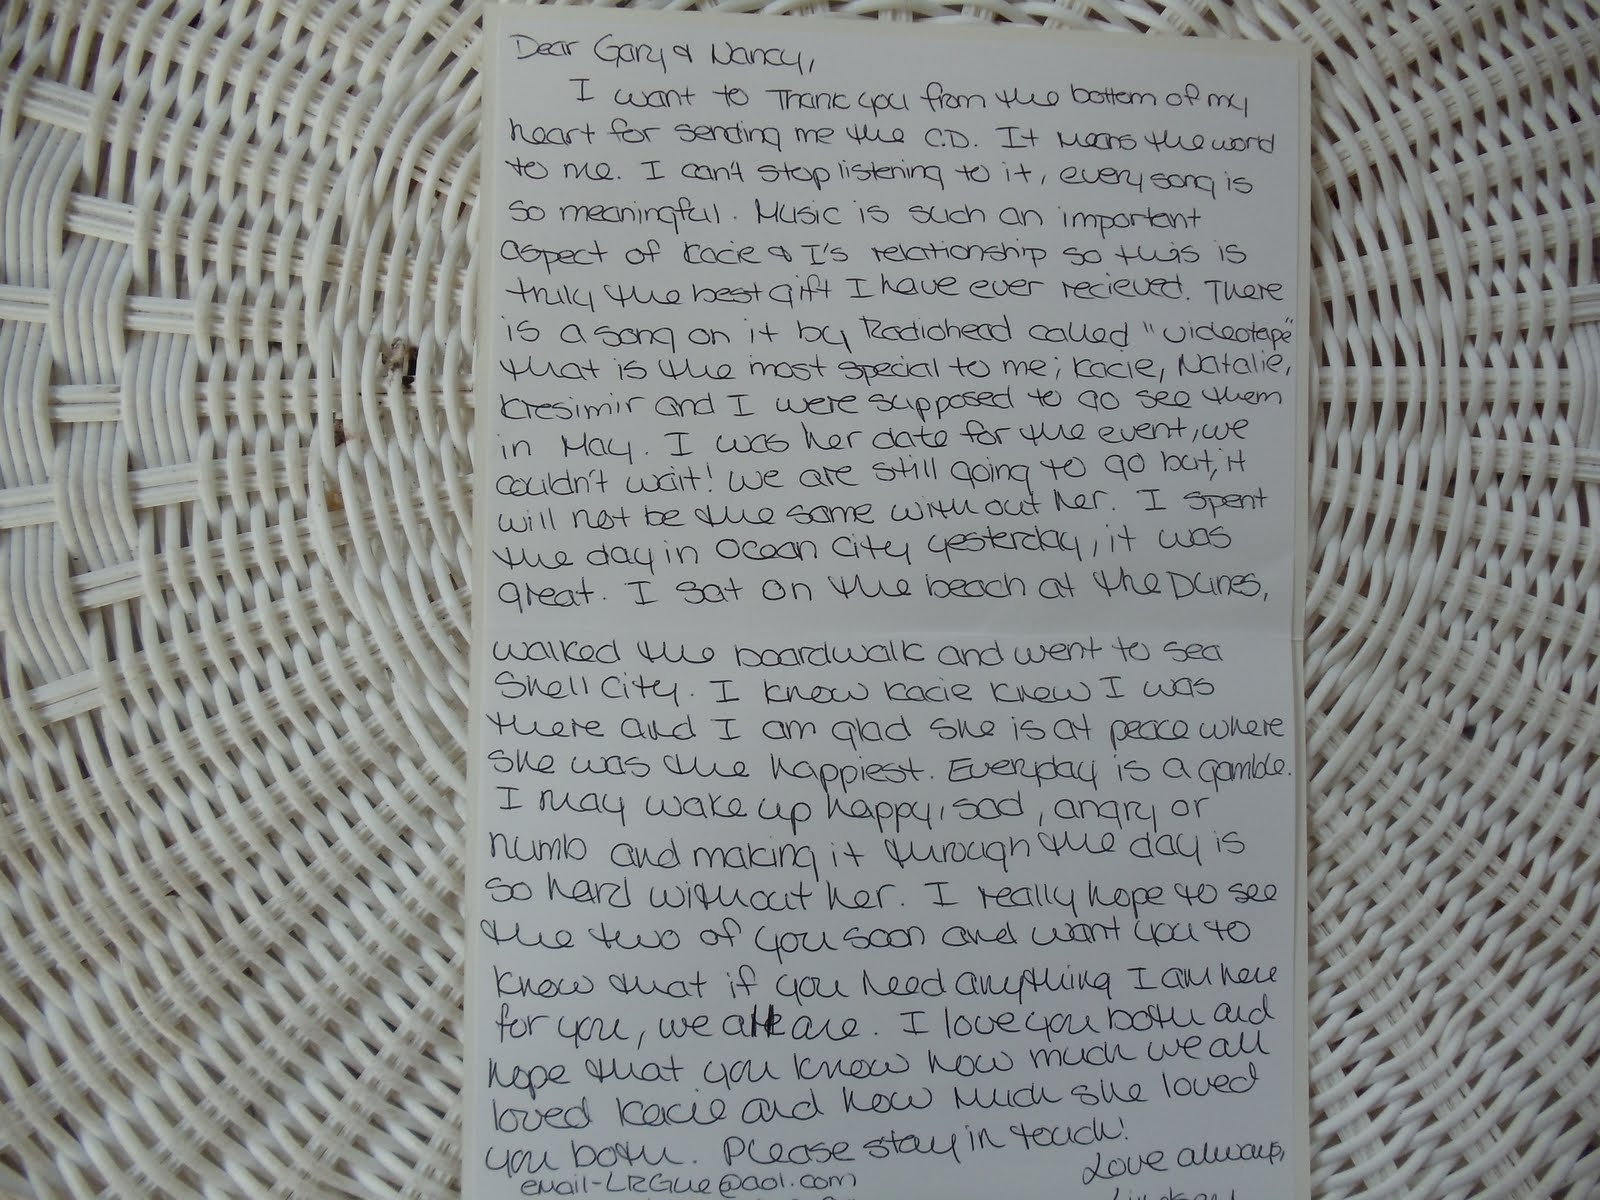 Dear Gary & Nancy,
I want to Thank you from the bottom of my
heart for sending me the C.D. It Means the word
to me. I can't stop listening to it, every song is
so meaningful. Music is such an important
aspect of Kacie & I's relationship so this is
truly the best gift I have ever recieved. There
is a song on it by Radiohead called "videotape"
that is the most special to me; Kacie, Natalie,
Kresimir and I were supposed to go see them
in May. I was her date for the event, we
couldn't wait! We are still going to go but, it
will not be the same without her. I spent
the day in Ocean City yesterday, it was
great. I sat on the beach at the Dunes,
walked the boardwalk and went to sea
Shell City. I know Kacie knew I was
there and I am glad she is at peace where
she was the happiest. Everyday is a gamble.
I may wake up happy, sad, angry or
numb and making it through the day is
so hard without her. I really hope to see
the two of you soon and want you to
know that if you need anything I am here
for you, we all are. I love you both and
hope that you know how much we all
loved Kacie and how much she loved
you both. Please stay in touch!
Love always,
email-LRGue@aol.com
Lindsay